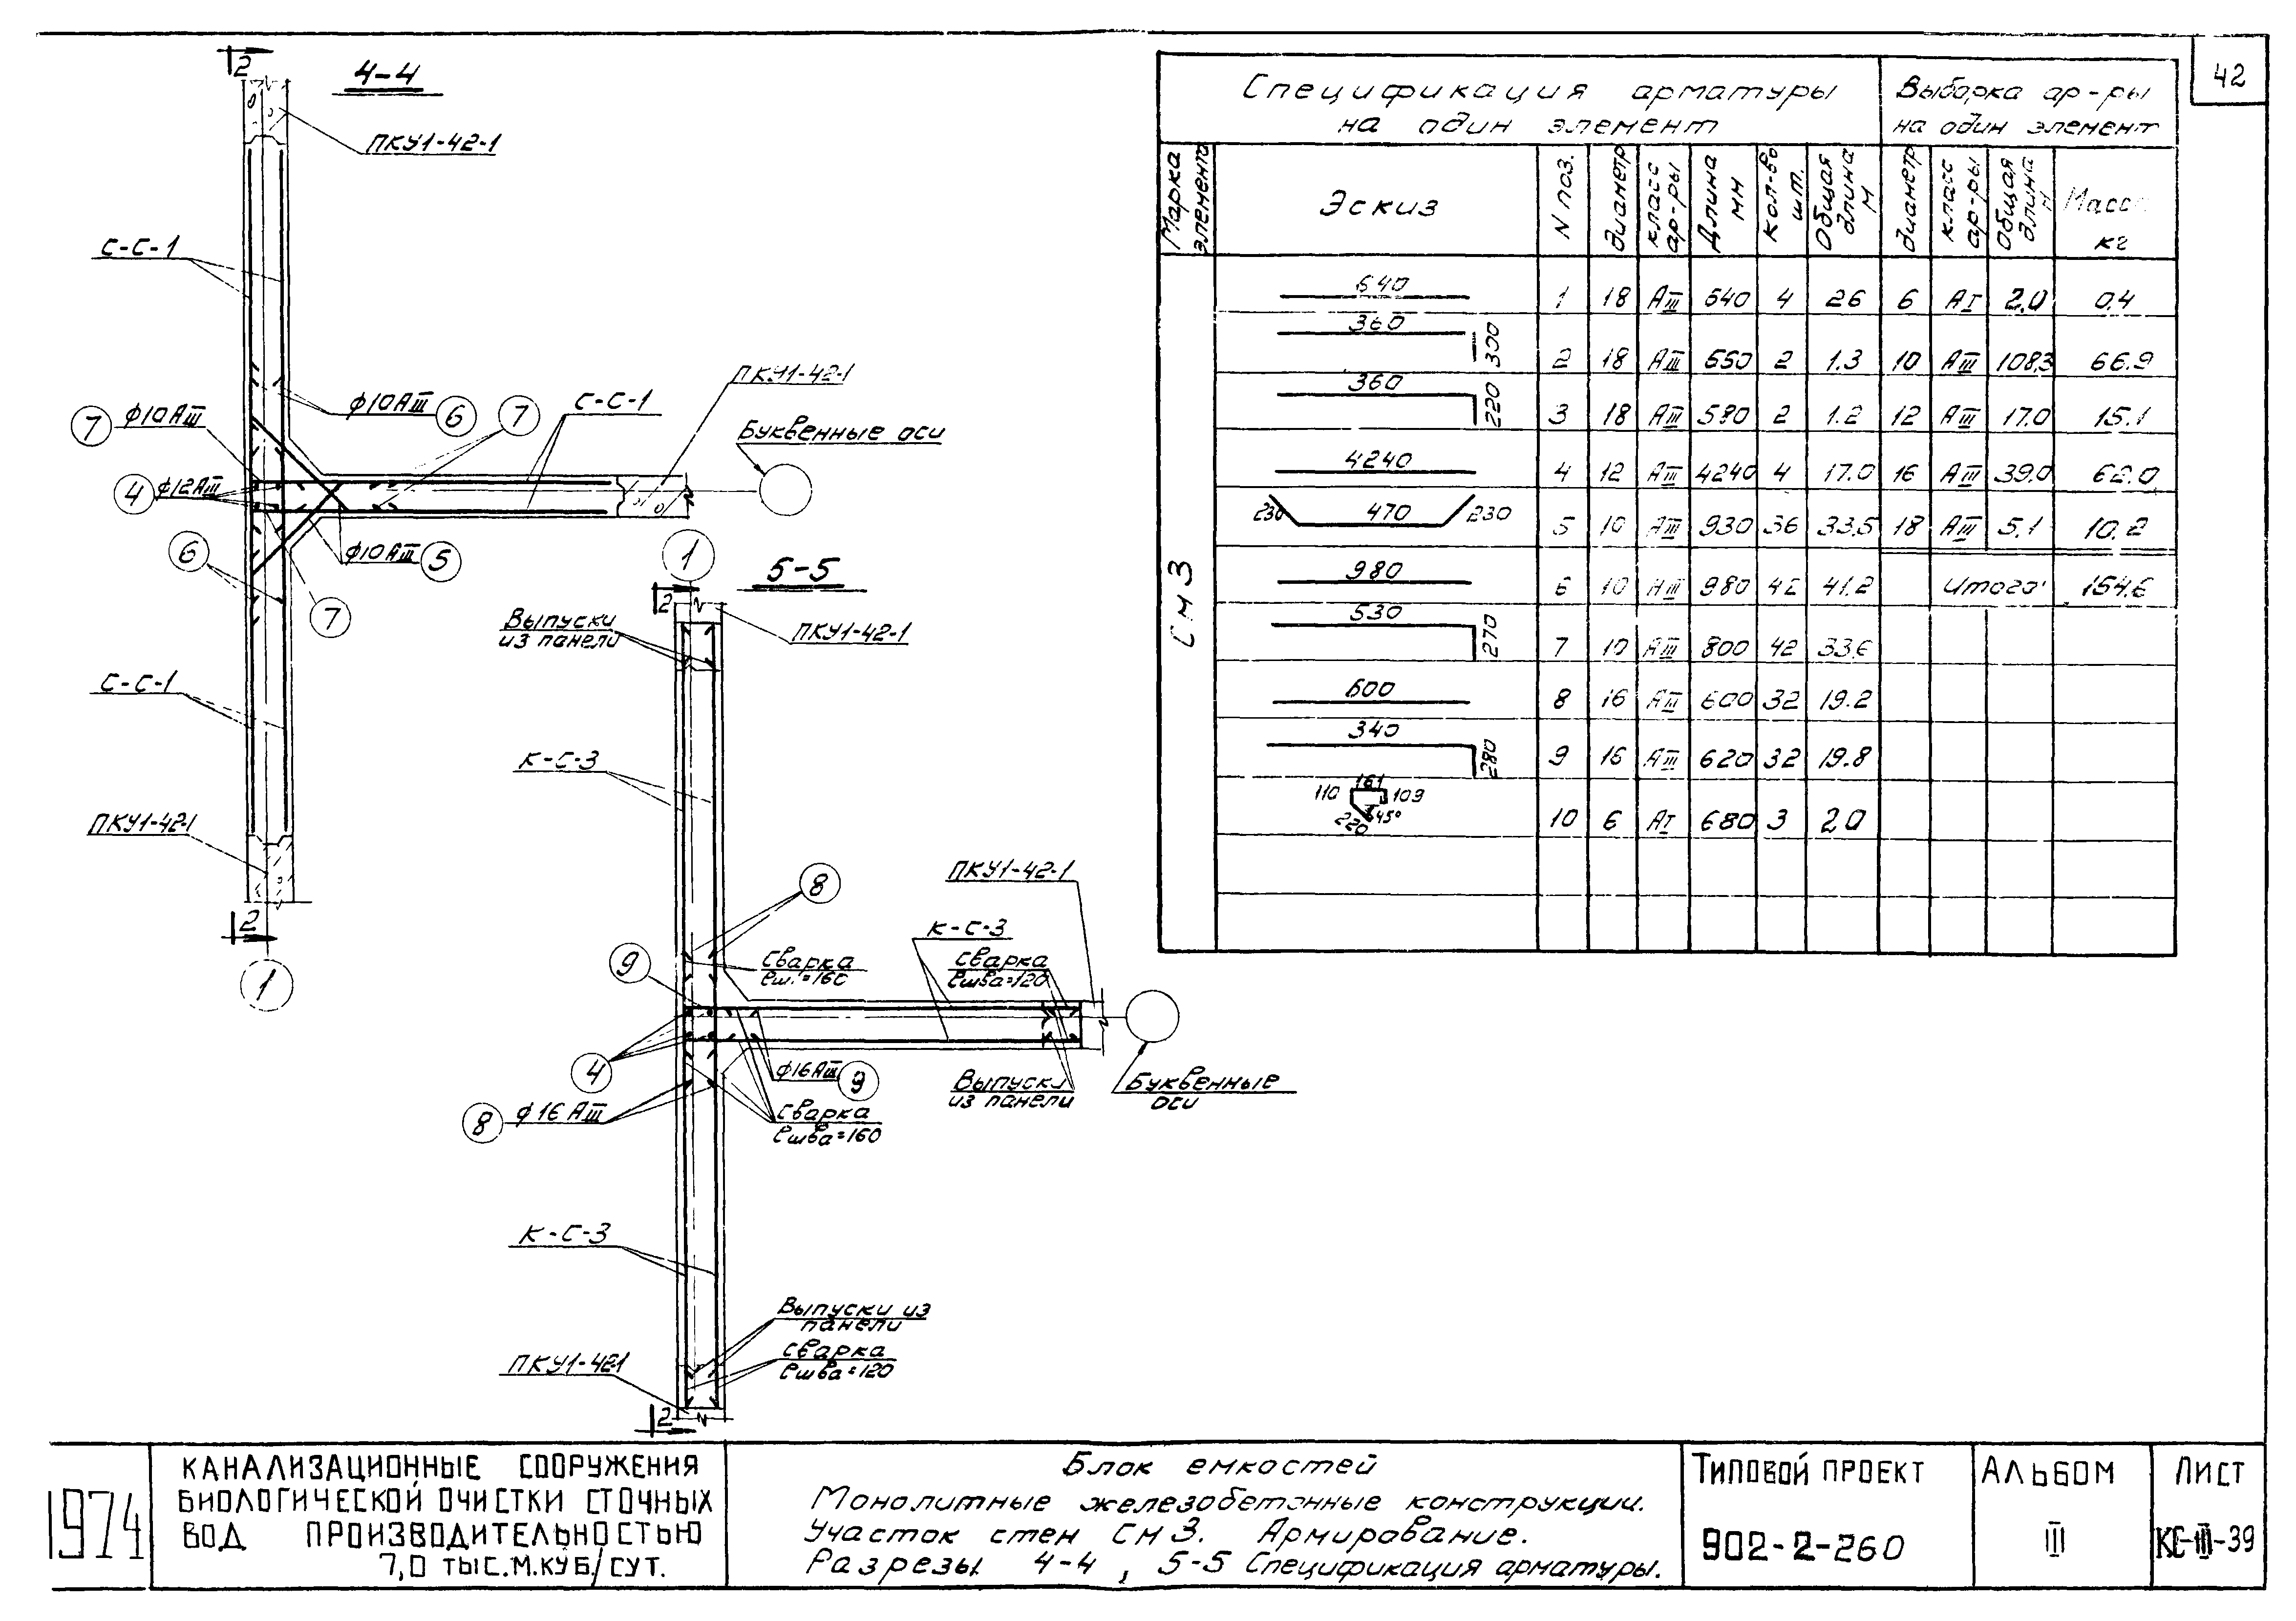 42
4-4
2
ПКУ1-42-1
С-С-1
ф10АIII 6
7 ф10АIII
7
С-С-1
ПКУ1-42-1
Буквенные оси
4 ф12АIII
ф10АIII 5
6
7
С-С-1
ПКУ1-42-1
2
1
1
5-5
2
Выпуски
из панели
ПКУ1-42-1
К-С-3
8
ПКУ1-42-1
К-С-3
9
Сварка
ℓш.=160
Сварка
ℓшва=120
4
ф16АIII 9
Выпуски
из панели
Буквенные
оси
8 ф16АIII
Сварка
ℓшва=160
К-С-3
Выпуски из
панели
Сварка
ℓшва=120
ПКУ1-42-1
2
Спецификация арматуры
на один элемент
Выборка ар-ры
на один элемент
Марка элемента Эскиз N поз. диаметр класс ар-ры Длина мм Кол-во шт. Общая длина м диаметр класс ар-ры Общая длина м Масса кг
См 3
640 1 18 АIII 640 4 2.6 6 АI 2.0 0.4
360 300 2 18 АIII 660 2 1.3 10 АIII 108.3 66.9
360 220 3 18 АIII 580 2 1.2 12 АIII 17.0 15.1
4240 4 12 АIII 4240 4 17.0 16 АIII 39.0 62.0
230 470 230 5 10 АIII 930 36 33.5 18 АIII 5.1 10.2
980 6 10 АIII 980 42 41.2 Итого: 154.6
530 270 7 10 АIII 800 42 33.6
600 8 16 АIII 600 32 19.2
340 280 9 16 АIII 620 32 19.8
110 161 109 220 45° 10 6 АI 680 3 2.0
1974
КАНАЛИЗАЦИОННЫЕ СООРУЖЕНИЯ
БИОЛОГИЧЕСКОЙ ОЧИСТКИ СТОЧНЫХ
ВОД ПРОИЗВОДИТЕЛЬНОСТЬЮ
7,0 ТЫС.М.КУБ/СУТ.
Блок емкостей
Монолитные железобетонные конструкции.
Участок стен См 3. Армирование.
Разрезы 4-4, 5-5 Спецификация арматуры.
ТИПОВОЙ ПРОЕКТ
902-2-260
АЛЬБОМ
III
ЛИСТ
КС-III-39